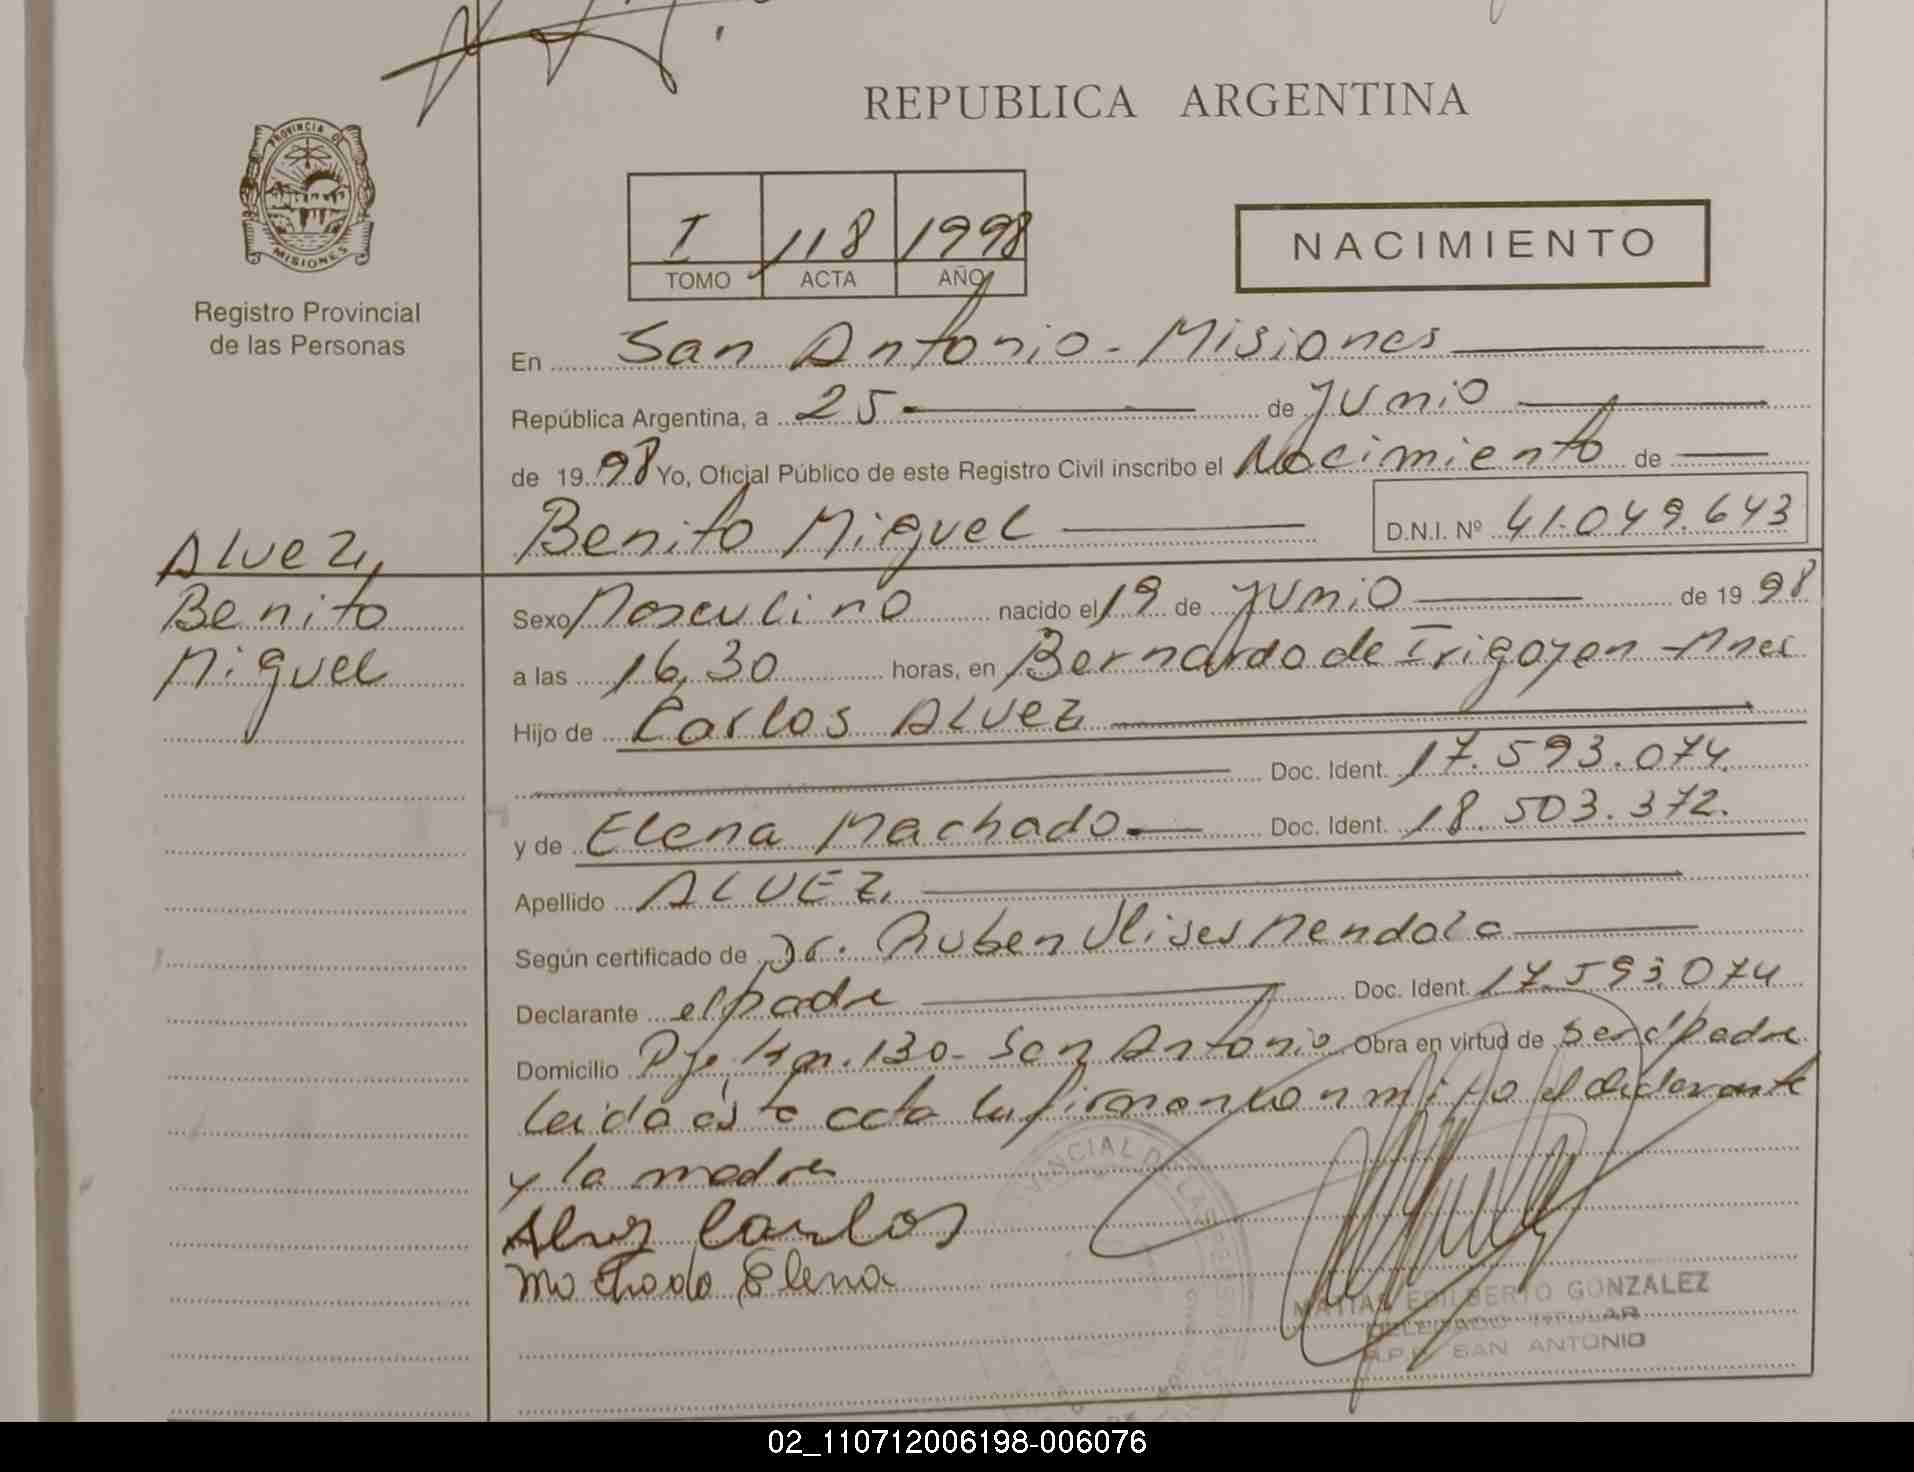 REPUBLICA ARGENTINA
PROVINCIA DE
MISIONES
Registro Provincial
de las Personas
I 118 1998
TOMO ACTA AÑO
NACIMIENTO
En San Antonio - Misiones
República Argentina, a 25 de Junio
de 1998 Yo, Oficial Público de este Registro Civil inscribo el Nacimiento de
Benito Miguel D.N.I. Nº 41.049.643
Alvez,
Benito
Miguel
Sexo Masculino nacido el 19 de Junio de 1998
a las 16,30 horas, en Bernardo de Irigoyen - Mnes
Hijo de Carlos ALVEZ
Doc. Ident. 17.593.074.
y de Elena Machado Doc. Ident. 18.503.372.
Apellido ALVEZ.
Según certificado de Dr. Ruben Ulises Mendoza
Declarante el padre Doc. Ident. 17.593.074
Domicilio Pje. Km. 130 - San Antonio Obra en virtud de ser el padre
Leida esta acta la firman conmigo el declarante
y la madre
Alvez Carlos
Machado Elena
MATIAS EDILBERTO GONZALEZ
DELEGADO TITULAR
R.P.P. SAN ANTONIO
02_110712006198-006076